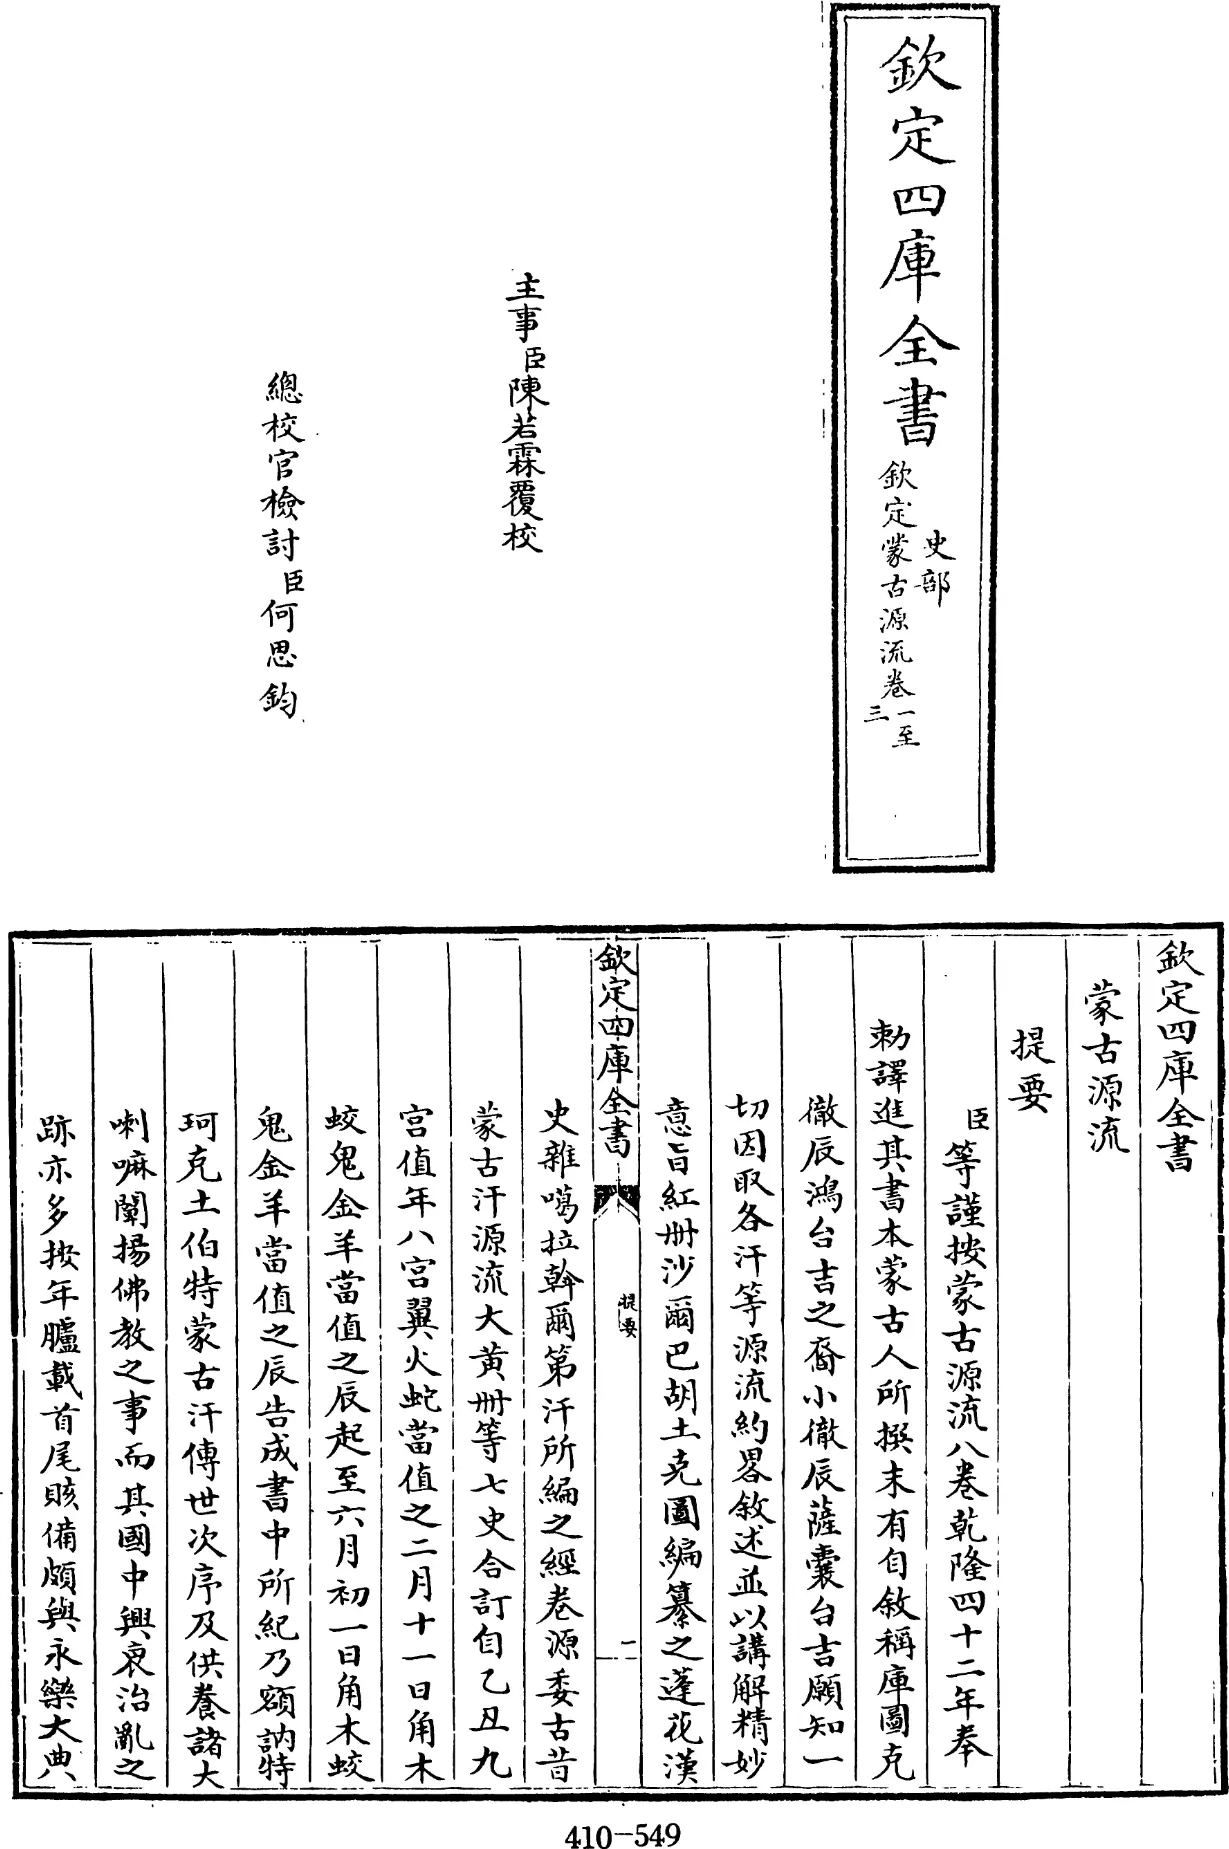 欽定四庫全書
史部
欽定蒙古源流卷一至三
主事臣陳若霖覆校
總校官檢討臣何思鈞
欽定四庫全書
蒙古源流
提要
臣等謹按蒙古源流八卷乾隆四十二年奉
勅譯進其書本蒙古人所撰末有自敘稱庫圖克
徹辰鴻台吉之裔小徹辰薩囊台吉願知一
切因取各汗等源流約畧敘述並以講解精妙
意旨紅册沙爾巴胡土克圖編纂之蓬花漢
欽定四庫全書
提要
一
史雜噶拉斡爾第汗所編之經卷源委古昔
蒙古汗源流大黄册等七史合訂自乙丑九
宫值年八宫翼火蛇當值之二月十一日角木
蛟鬼金羊當值之辰起至六月初一日角木蛟
鬼金羊當值之辰告成書中所紀乃額訥特
珂克土伯特蒙古汗傳世次序及供養諸大
喇嘛闡揚佛教之事而其國中興衰治亂之
跡亦多按年臚載首尾賅備頗與永樂大典
410-549